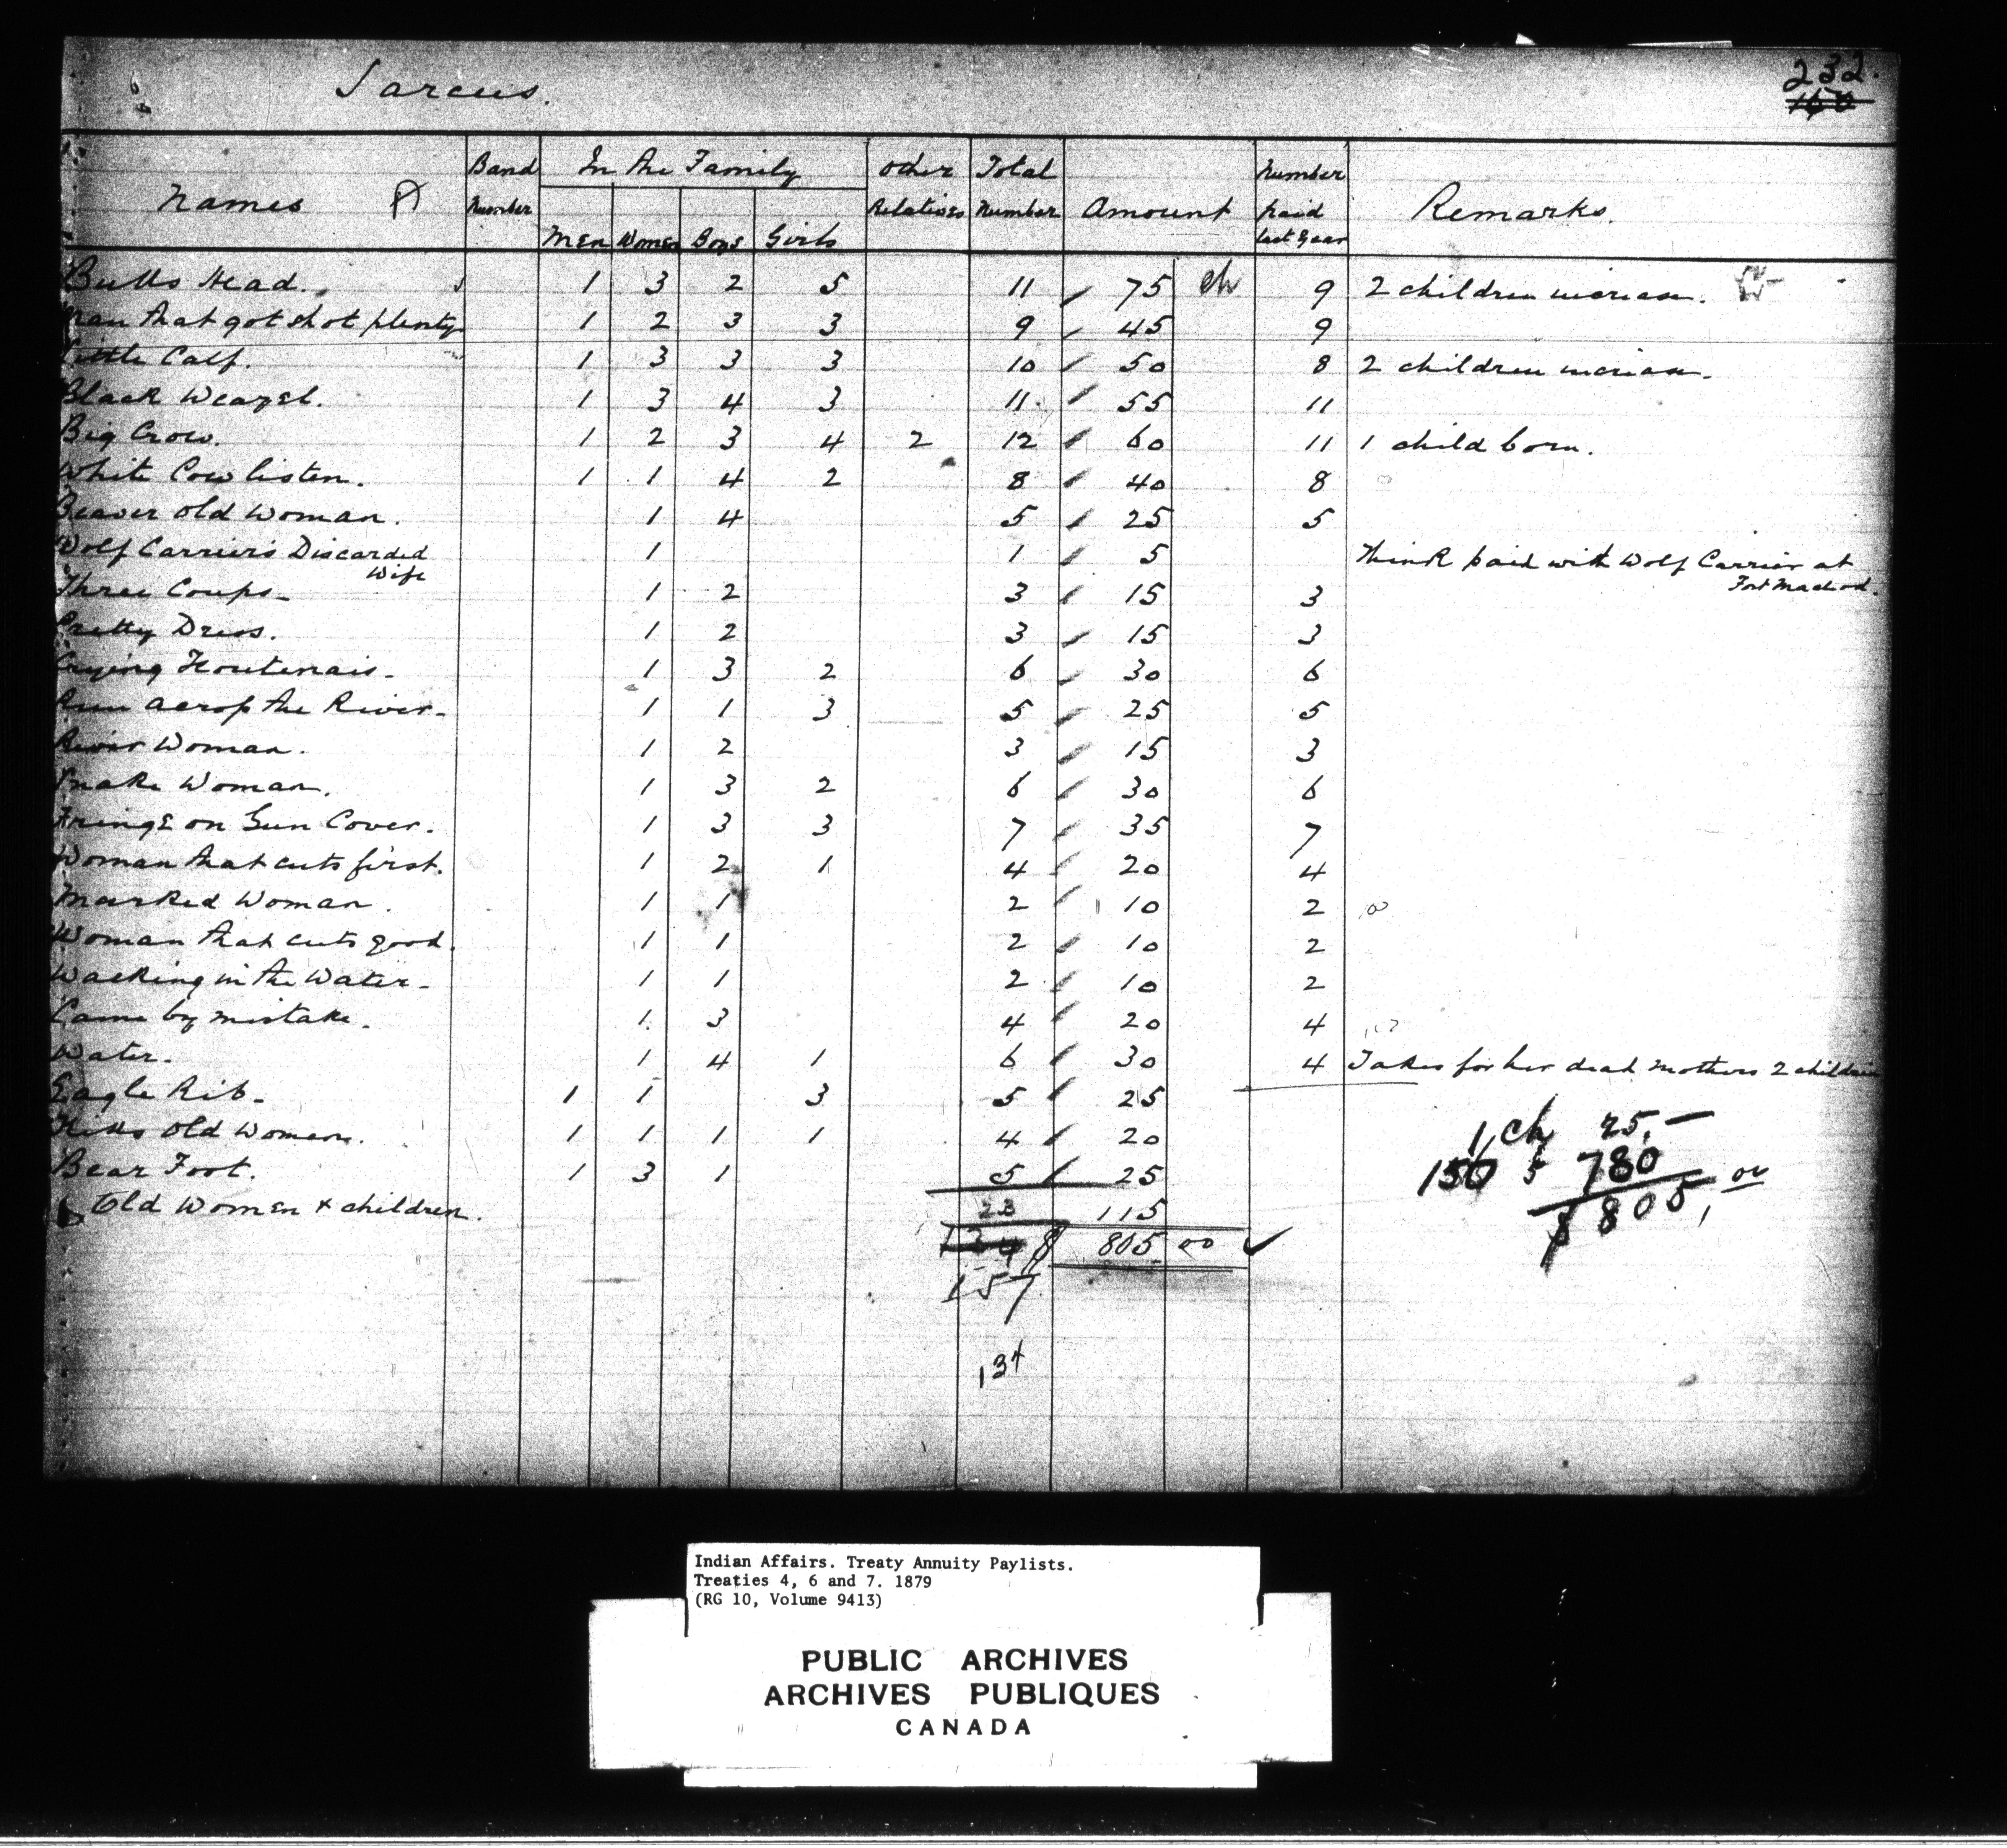 232.
160
Sarcees.
Names
Band Number
In the Family
Men Women Boys Girls
Other Relatives
Total Number
Amount
Number paid last year
Remarks.
Bulls Head. 1 3 2 5 11 75 ch 9 2 children increase.
Man that got shot plenty 1 2 3 3 9 45 9
Little Calf. 1 3 3 3 10 50 8 2 children increase.
Black Weazel. 1 3 4 3 11 55 11
Big Crow. 1 2 3 4 2 12 60 11 1 child born.
White Cow listen. 1 1 4 2 8 40 8
Beaver Old Woman. 1 4 5 25 5
Wolf Carrier's Discarded Wife 1 1 5 Think paid with Wolf Carrier at Fort Macleod.
Three Coups- 1 2 3 15 3
Pretty Dress. 1 2 3 15 3
Crying Koutenais- 1 3 2 6 30 6
Run across the River- 1 1 3 5 25 5
River Woman. 1 2 3 15 3
Snake Woman. 1 3 2 6 30 6
Fringe on Gun Cover. 1 3 3 7 35 7
Woman that cuts first. 1 2 1 4 20 4
Marked Woman. 1 1 2 10 2
Woman that cuts good. 1 1 2 10 2
Walking in the Water- 1 1 2 10 2
Came by mistake. 1 3 4 20 4
Water. 1 4 1 6 30 4 Takes for her dead mothers 2 children
Eagle Rib- 1 1 3 5 25
Kills Old Woman. 1 1 1 1 4 20
Bear Foot. 1 3 1 5 25
Old Women & children. 23 115
134 $ 805 00
157
134
1 ch 25.-
156 5 780
$ 805,00
Indian Affairs. Treaty Annuity Paylists.
Treaties 4, 6 and 7. 1879
(RG 10, Volume 9413)
PUBLIC ARCHIVES
ARCHIVES PUBLIQUES
CANADA